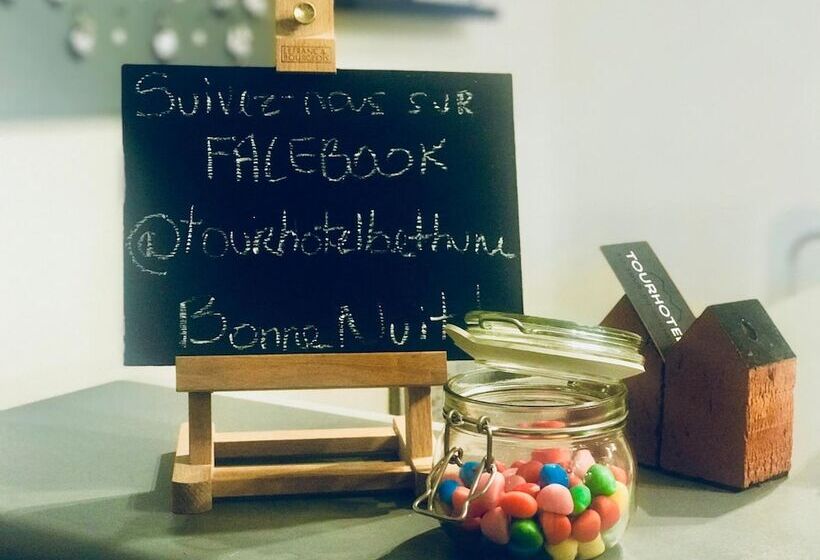 LEFRANC & BOURGEOIS
Suivez-nous sur
FACEBOOK
@tourhotelbethune
Bonne Nuit!
TOURHOTEL